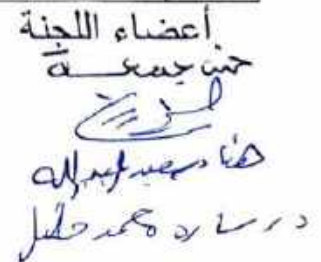 أعضاء اللجنة
جمعة
هناء سعيد عبدالله
د. سارة محمد خليل